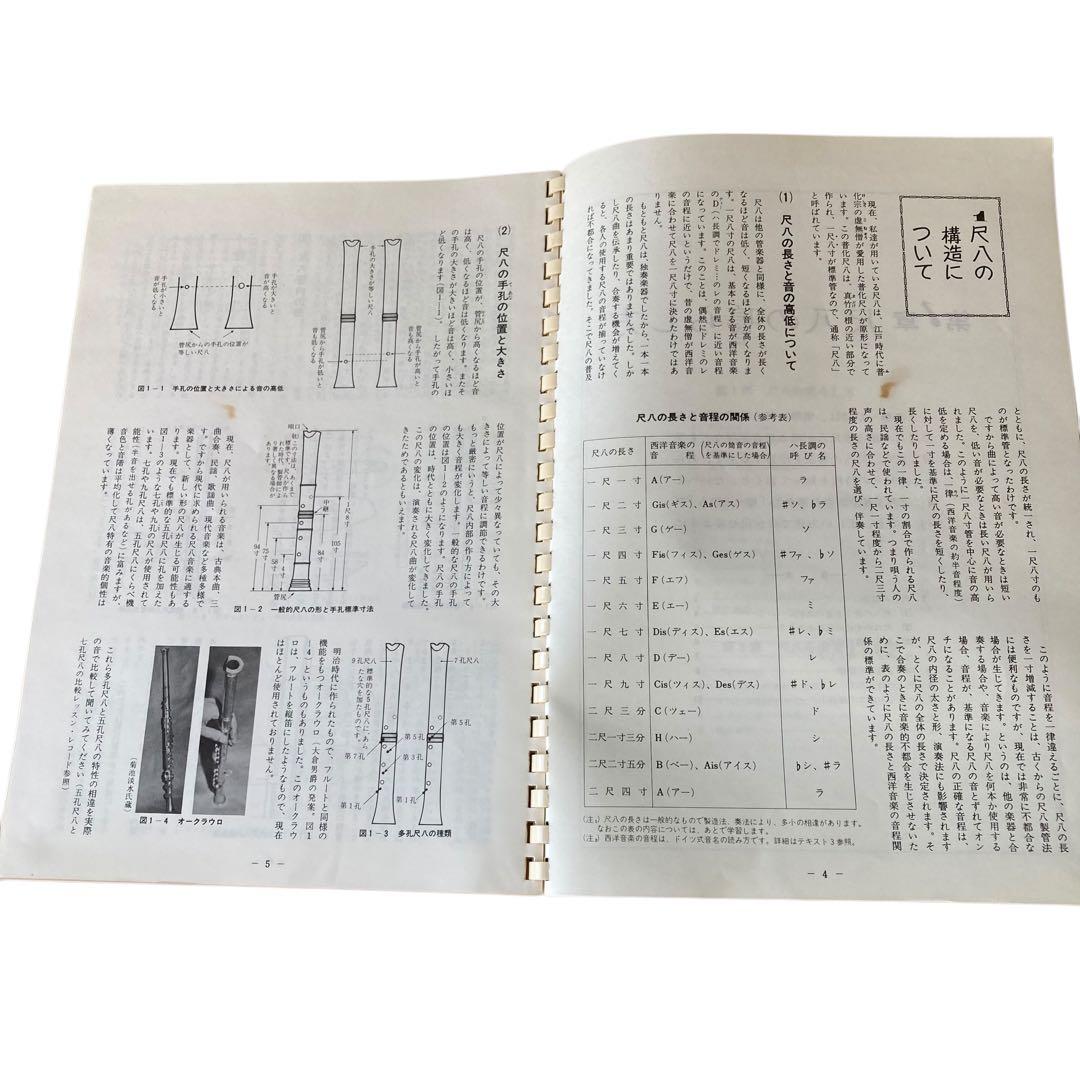 1 尺八の
構造に
ついて
現在、私達が用いている尺八は、江戸時代に普
化宗の虚無僧が愛用した普化尺八が原形になって
います。この普化尺八は、真竹の根の近い部分で
作られ、一尺八寸が標準管なので、通称「尺八」
と呼ばれています。
(1) 尺八の長さと音の高低について
尺八は他の管楽器と同様に、全体の長さが長く
なるほど音は低く、短くなるほど音が高くなりま
す。一尺八寸の尺八は、基本になる音が西洋音楽
のD（ハ長調でドレミ…のレの音程）に近い音程
になっています。このことは、偶然にドレミのレ
の音程に近いというだけで、昔の虚無僧が西洋音
楽に合わせて尺八を一尺八寸に決めたわけではあ
りません。
もともと尺八は、独奏楽器でしたから、一本一本
の長さはあまり重要ではありませんでした。しか
し尺八曲を伝承したり、合奏する機会が増えてく
ると、各人の使用する尺八の音程が揃っていなけ
れば不都合になってきました。そこで尺八の普及
とともに、尺八の長さが統一され、一尺八寸のも
のが標準管となったわけです。
ですから曲によって高い音が必要なときは短い
尺八を、低い音が必要なときは長い尺八が用いら
れました。このように一尺八寸管を中心に音の高
低を定める場合は、一律（西洋音楽の約半音程度）
に対して一寸を基準に尺八の長さを短くしたり、
長くしたりしました。
現在でもこの一律、一寸の割合で作られる尺八
は、民謡などで使われています。つまり唄う人の
声の高さに合わせて、一尺一寸程度から二尺三寸
程度の長さの尺八を選び、伴奏しています。
このように音程を一律違えるごとに、尺八の長
さを一寸増減することは、古くからの尺八製管法
には便利なものですが、現在では非常に不都合な
場合が生じてきます。というのは、他の楽器と合
奏する場合や、音楽により尺八を何本か使用する
場合、音程が、基準になる尺八の音とずれてオン
チになることがあります。尺八の正確な音程は、
尺八の内径の太さと形、演奏法にも影響されます
が、とくに尺八の全体の長さで決定されます。そ
こで合奏のときに音楽的不都合を生じさせないた
めに、表のように尺八の長さと西洋音楽の音程関
係の標準ができています。
尺八の長さと音程の関係（参考表）
尺八の長さ 西洋音楽の音程（尺八の筒音の音程を基準にした場合） ハ長調の呼び名
一尺一寸 A(アー) ラ
一尺二寸 Gis(ギス)、As(アス) ♯ソ、♭ラ
一尺三寸 G(ゲー) ソ
一尺四寸 Fis(フィス)、Ges(ゲス) ♯ファ、♭ソ
一尺五寸 F(エフ) ファ
一尺六寸 E(エー) ミ
一尺七寸 Dis(ディス)、Es(エス) ♯レ、♭ミ
一尺八寸 D(デー) レ
一尺九寸 Cis(ツィス)、Des(デス) ♯ド、♭レ
二尺三分 C(ツェー) ド
二尺一寸三分 H(ハー) シ
二尺二寸五分 B(ベー)、Ais(アイス) ♭シ、♯ラ
二尺四寸 A(アー) ラ
(注₁) 尺八の長さは一般的なもので製造法、奏法により、多小の相違があります。
なおこの表の内容については、あとで学習します。
(注₂) 西洋音楽の音程は、ドイツ式音名の読み方です。詳細はテキスト3参照。
— 4 —
(2) 尺八の手孔の位置と大きさ
尺八の手孔の位置が、管尻から高くなるほど音
は高く、低くなるほど音は低くなります。またそ
の手孔の大きさが大きいほど音は高く、小さいほ
ど低くなります（図1—1）。したがって手孔の
手孔の大きさが等しい尺八
管尻から手孔が高いと
音も高くなる
管尻から手孔が低いと
音も低くなる
手孔が大きいと
音が高くなる
手孔が小さいと
音が低くなる
管尻からの手孔の位置が
等しい尺八
図1－1 手孔の位置と大きさによる音の高低
位置が尺八によって少々異なっていても、その大
きさによって等しい音程に調節できるわけです。
もっと厳密にいうと、尺八内部の作り方によって
も大きく音程が変化します。一般的な尺八の手孔
の位置は図1—2のようになります。尺八の手孔
の位置は、時代とともに大きく変化してきました。
この尺八の変化は、演奏される尺八曲が変化して
きたためであるともいえます。
唄口
中継
1尺8寸
105
84
4寸
58
75寸
94寸
管尻
図1－2 一般的尺八の形と手孔標準寸法
現在、尺八が用いられる音楽は、古典本曲、三
曲合奏、民謡、歌謡曲、現代音楽など多種多様で
す。ですから現代に求められる尺八音楽に適する
楽器として、新しい形の尺八が生じる可能性もあ
ります。現在でも標準的な五孔尺八に孔を加えた
図1—3のような七孔や九孔の尺八が使用されて
います。七孔や九孔尺八は、五孔尺八にくらべ機
能性（半音を出せる孔があるなど）に富みますが、
音色と音階は平均化して尺八特有の音楽的個性は
薄くなっています。
7孔尺八
9孔尺八
標準的な5孔尺八にあら
たな穴を加えたものです。
第5孔
第5孔
第3孔
第7孔
第1孔
第1孔
図1－3 多孔尺八の種類
明治時代に作られたもので、フルートと同様の
機能をもつオークラウロ（大倉男爵の発案。図1
—4）というものもありました。このオークラウ
ロは、フルートを縦笛にしたようなもので、現在
はほとんど使用されておりません。
（菊池淡水氏蔵）
図1－4 オークラウロ
これら多孔尺八と五孔尺八の特性の相違を実際
の音で比較して聞いてみてください（五孔尺八と
七孔尺八の比較レッスン・レコード参照）
— 5 —